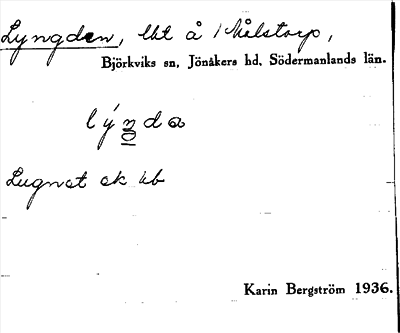 Lyngden, lht å Ålstorp,
Björkviks sn, Jönåkers hd. Södermanlands län.
lýnda
Lugnet ek kb
Karin Bergström 1936.